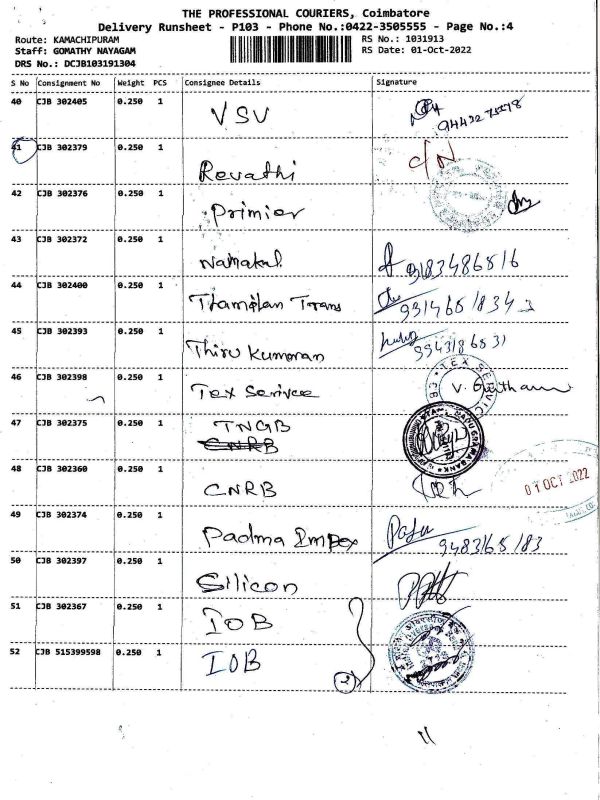 THE PROFESSIONAL COURIERS, Coimbatore
Delivery Runsheet - P103 - Phone No.:0422-3505555 - Page No.:4
Route: KAMACHIPURAM RS No.: 1031913
Staff: GOMATHY NAYAGAM RS Date: 01-Oct-2022
DRS No.: DCJB103191304
S No Consignment No Weight PCS Consignee Details Signature
40 CJB 302405 0.250 1 VSV
41 CJB 302379 0.250 1 Revathi C/N
42 CJB 302376 0.250 1 Primier
43 CJB 302372 0.250 1 Namakal
44 CJB 302400 0.250 1
45 CJB 302393 0.250 1 Thiru Kumaran
46 CJB 302398 0.250 1 Tex Serivce TEX SERVICE
47 CJB 302375 0.250 1 TNGB
CNRB
48 CJB 302360 0.250 1 CNRB 01 OCT 2022
49 CJB 302374 0.250 1 Padma Impex
50 CJB 302397 0.250 1 Silicon
51 CJB 302367 0.250 1 IOB
52 CJB 515399598 0.250 1 IOB
2